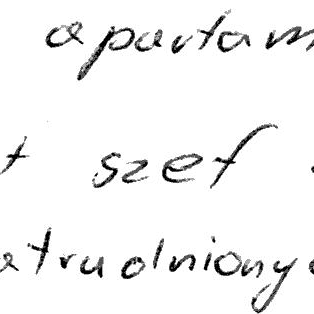 apartam
t szef
atrudnionyc